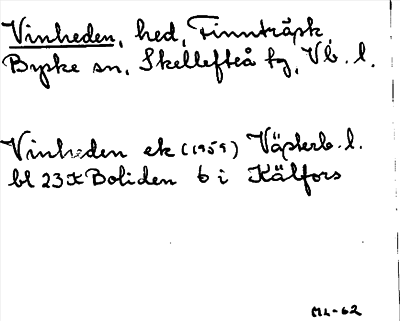 Vinheden, hed, Finnträsk,
Byske sn, Skellefteå tg, Vb. l.
Vinheden ek (1959) Västerb. l.
bl 23 K Boliden 6 i Kälfors
ML-62